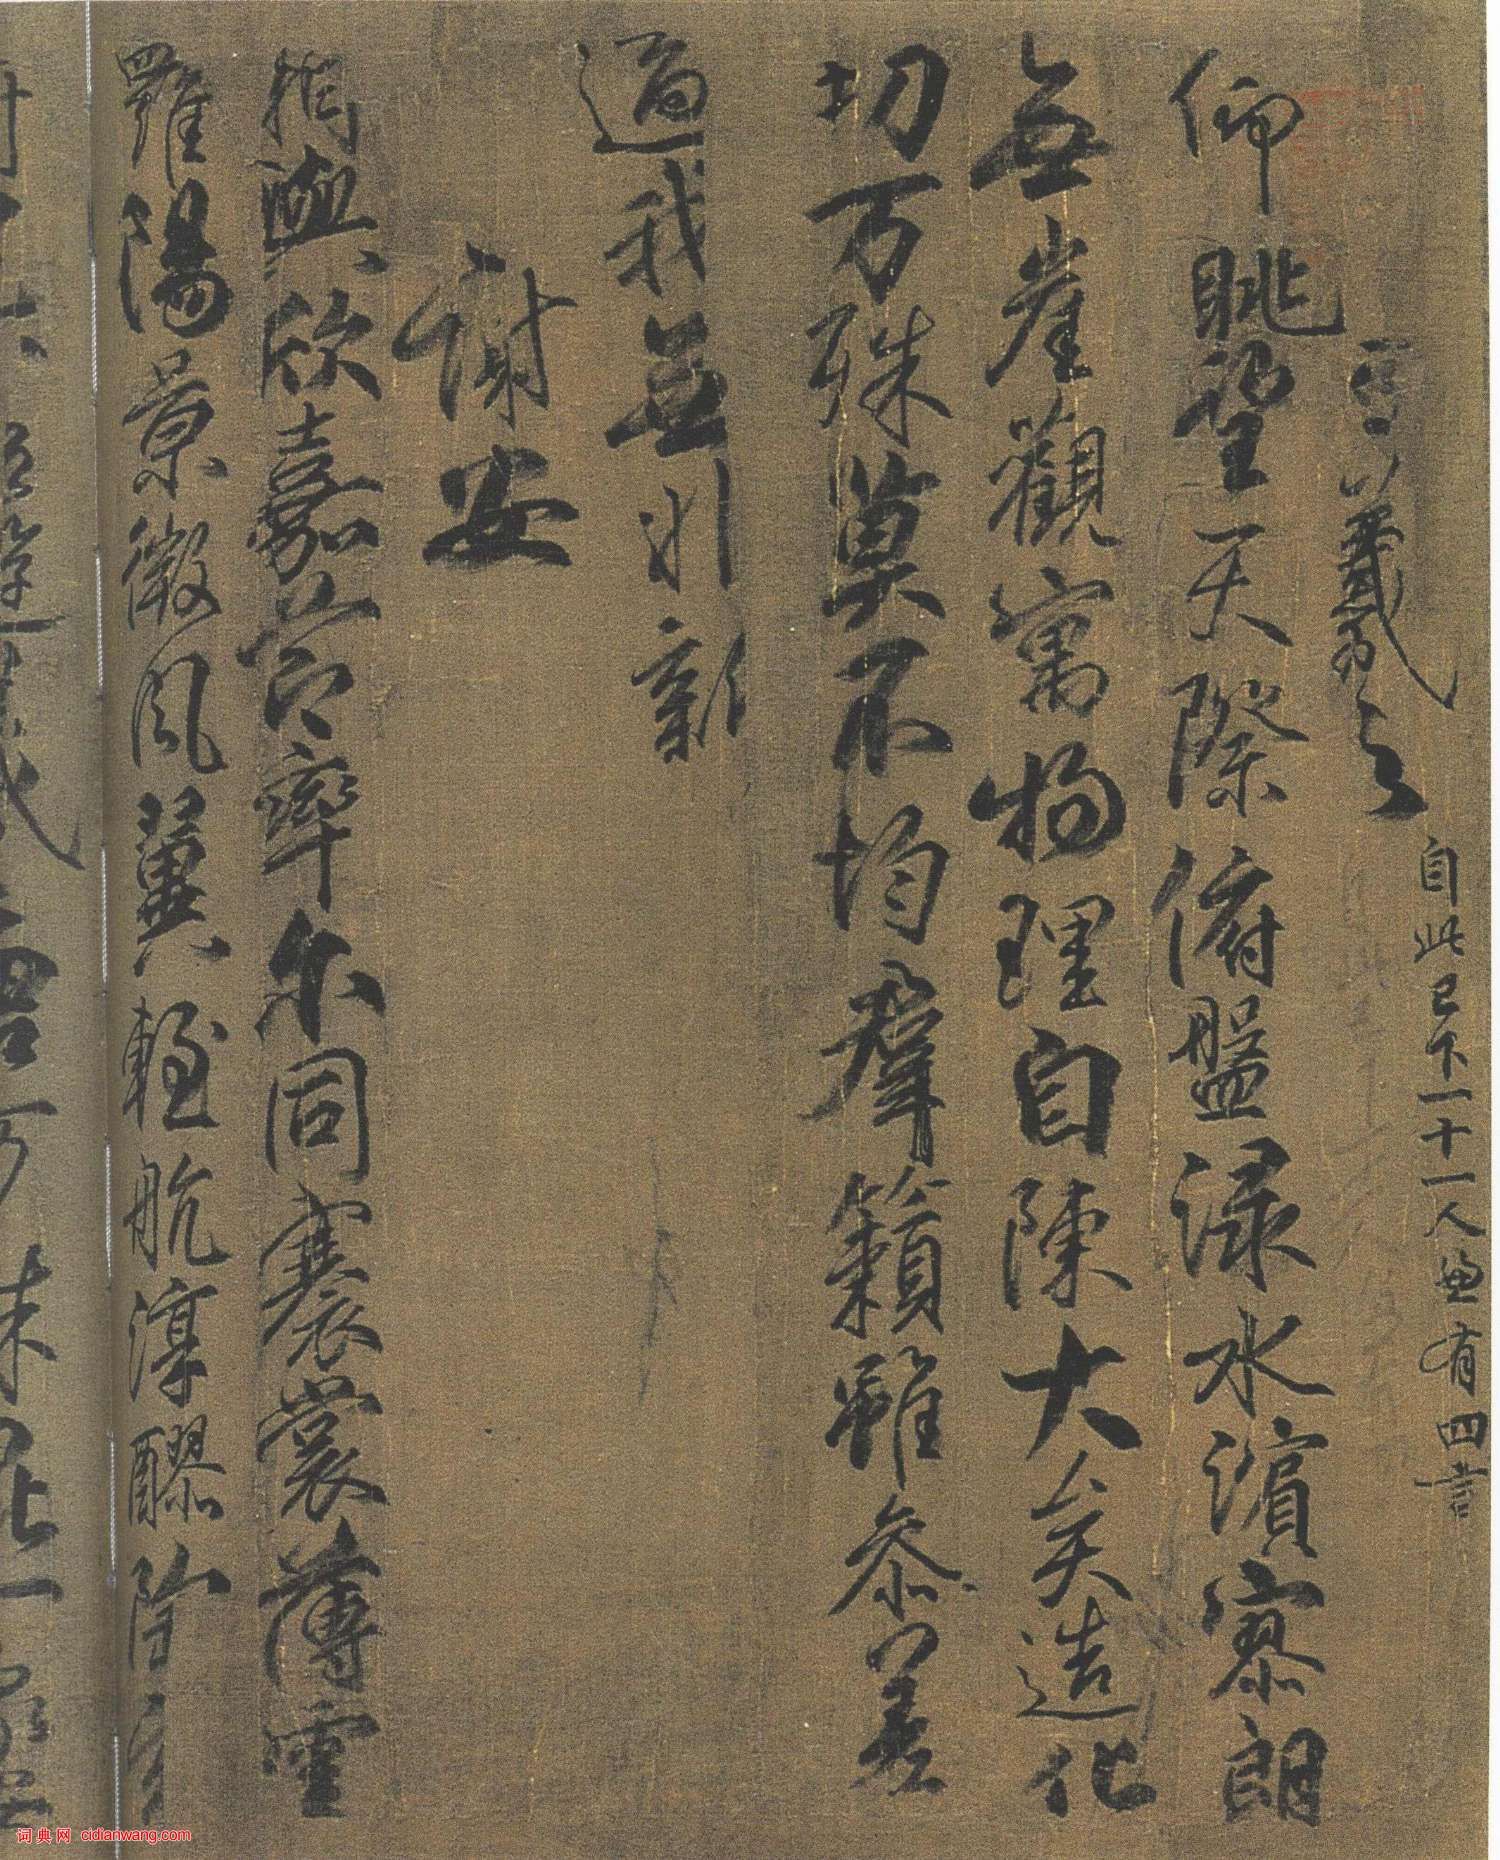 王羲之 自此已下一十一人兼有四言
仰眺望天際俯盤淥水濵寥朗
無崖觀寓物理自陳大矣造化
切万殊莫不均羣籟雖叅差
適我無非新
謝安
相與欣嘉節率尓同褰裳薄雲
羅陽景微風翼輕航淳醪陶
词典网 cidianwang.com